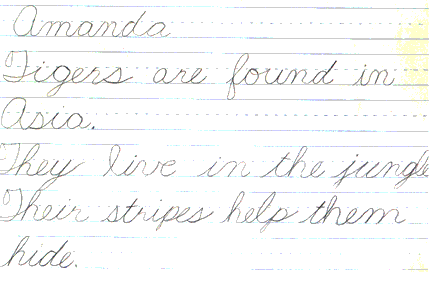 Amanda
Tigers are found in
Asia.
They live in the jungle
Their stripes help them
hide.